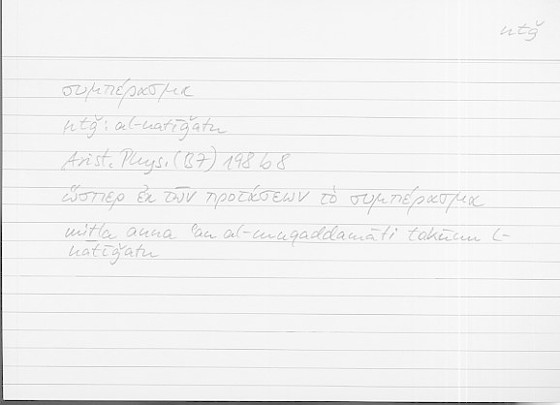 ntǧ
συμπέρασμα
ntǧ: al-natīǧatu
Arist. Phys. (B7) 198 b 8
ὥσπερ ἐκ τῶν προτάσεων τὸ συμπέρασμα
mitla anna ʿan al-muqaddamāti takūnu l-
natīǧatu